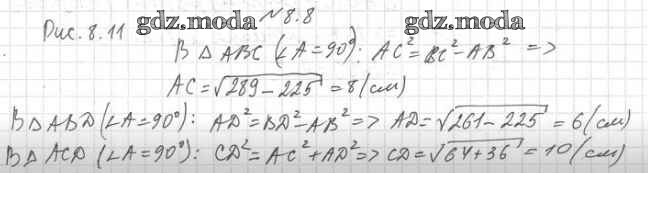 №8.8
Рис. 8.11 gdz.moda gdz.moda
В △ ABC (∠A=90°): AC²=BC²-AB² =>
AC=√289-225 = 8 (см)
В △ ABD (∠A=90°): AD²=BD²-AB² => AD=√261-225 = 6 (см)
В △ ACD (∠A=90°): CD²=AC²+AD² => CD=√64+36 = 10 (см)